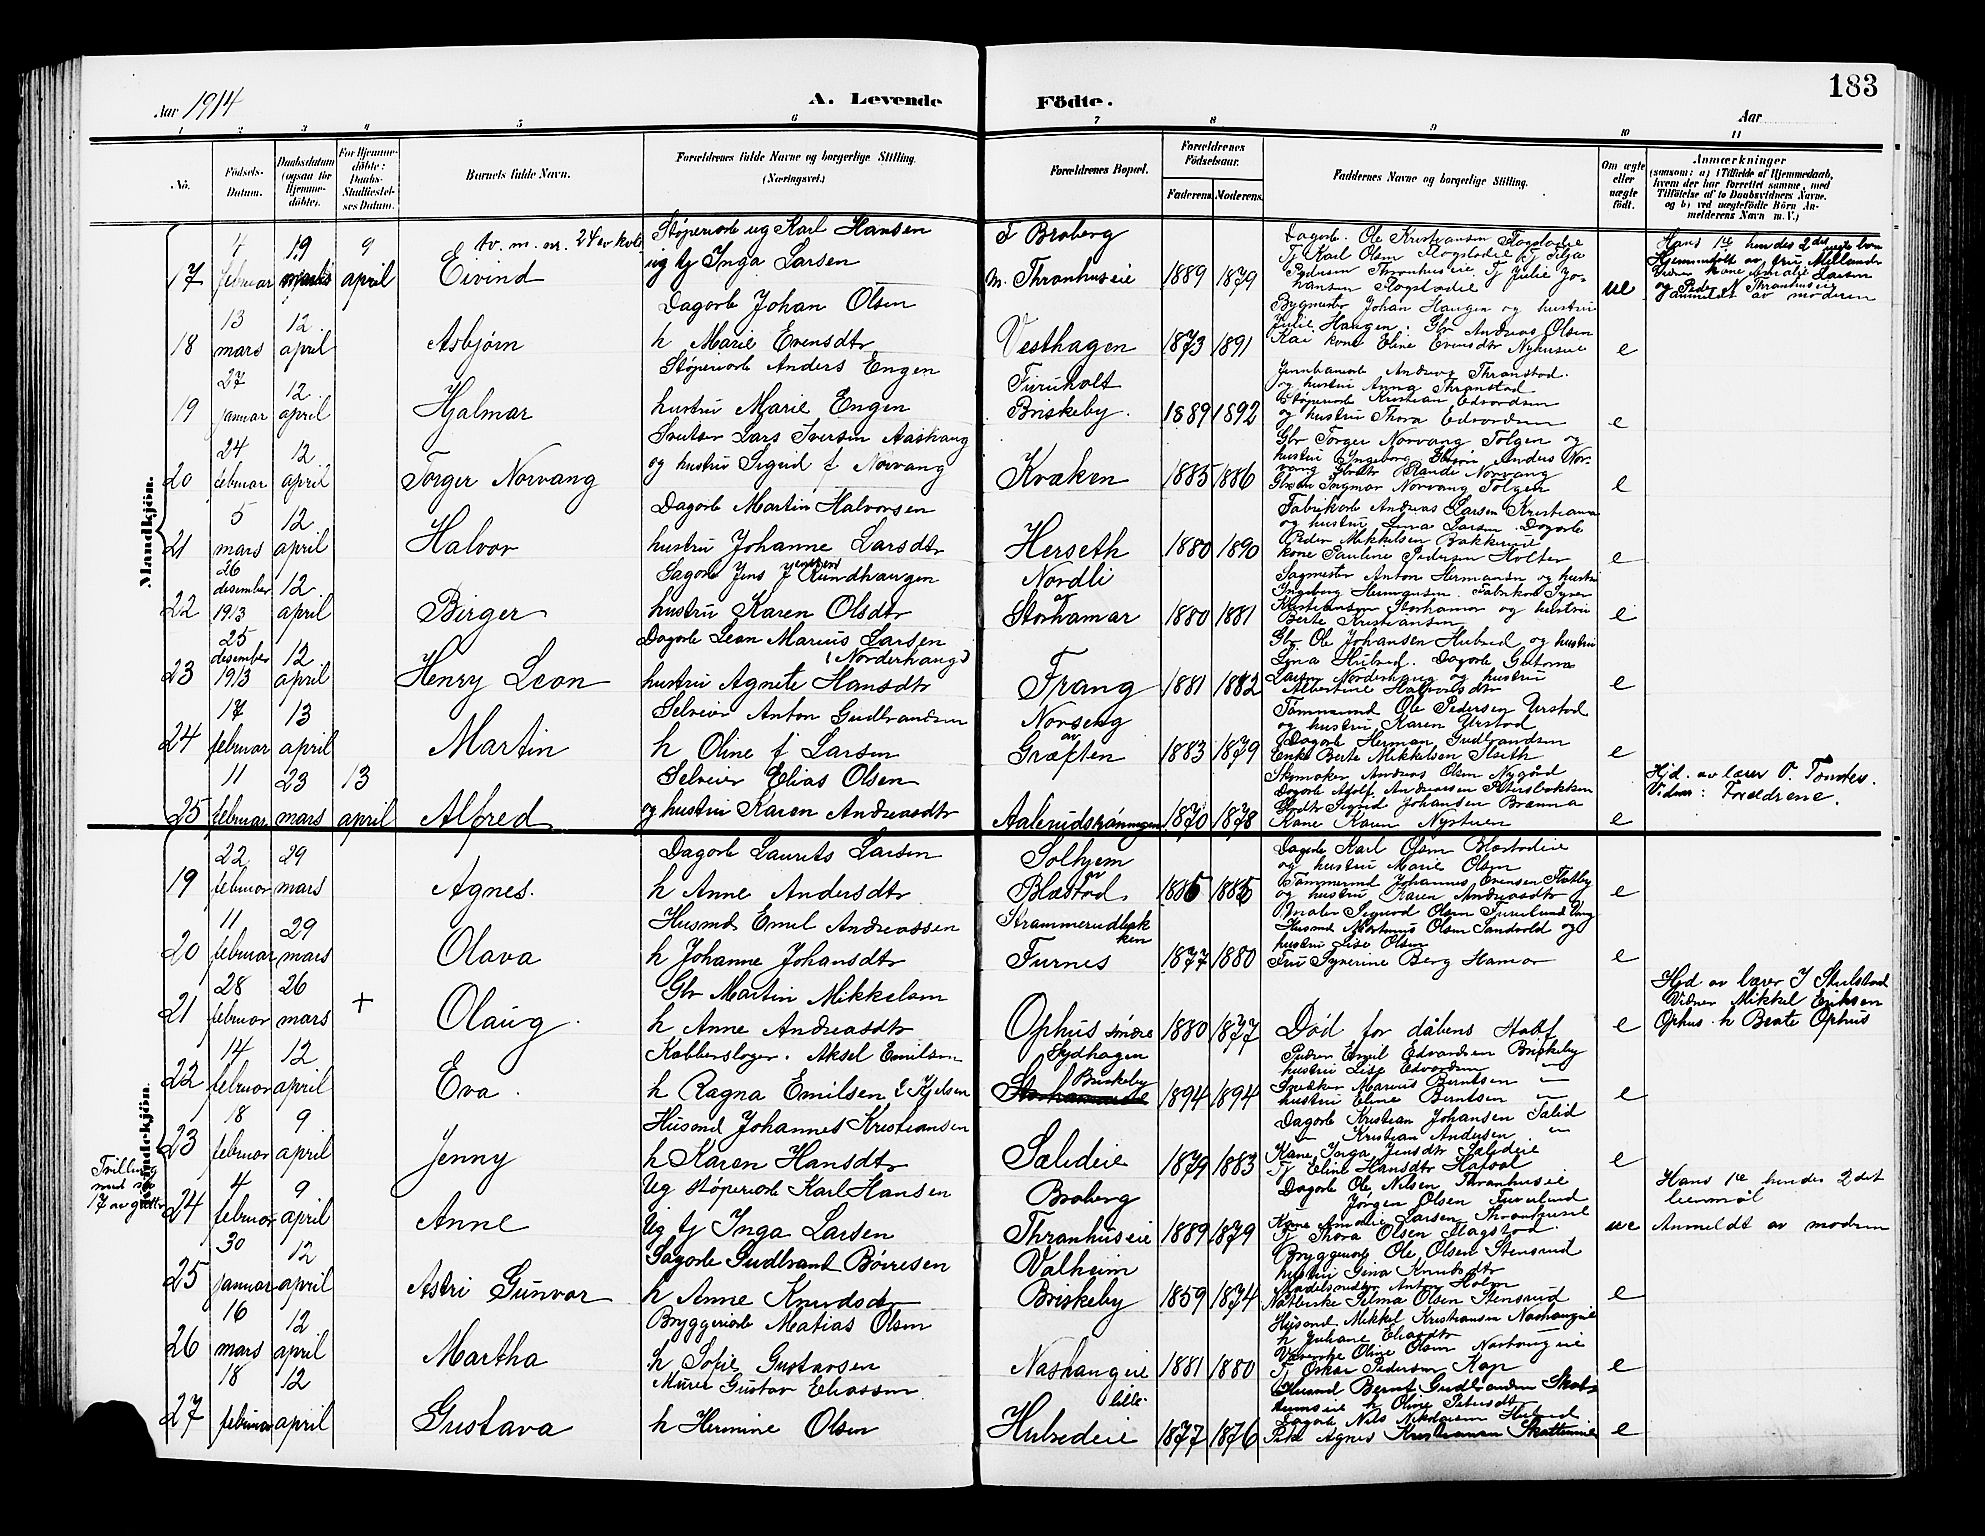 183
Aar 1914
A. Levende Födte.
Aar
1 2 3 4 5 6 7 8 9 10 11
No.
Födsels-Datum.
Daabsdatum (ogsaa for Hjemme-döbte).
For Hjemme-döbte: Daabs-Stadfæstel-ses Datum.
Barnets fulde Navn.
Forældrenes fulde Navne og borgerlige Stilling. (Næringsvei.)
Forældrenes Bopæl.
Forældrenes Födselsaar.
Faderens. Moderens.
Faddernes Navne og borgerlige Stilling.
Om ægte eller uægte födt.
Anmærkninger
(saasom: a) i Tilfælde af Hjemmedaab, hvem der har forrettet samme, med Tilföielse af to Daabsvidners Navne, og b) ved uægtefödte Börn An-melderens Navn m. V.)
Mandkjön.
17
4 februar
19 marts
9 april
Eivind
Støperiarb ug Karl Hansen
ug tj Inga Larsen
F Broberg
m. Thronhuseie
1889 1879
Dagarb. Ole Kristiansen Flagstadeie
Tj Karl Olsen Flagstadeie
ue
Hans 1te hendes 2det
anmeldt av moderen
18
13 mars
12. april
Asbjørn
Dagarb Johan Olsen
h Marie Evensdtr
Vesthagen
1873 1891
Bygmester Johan Haugen og hustru
Julie Haugen. Gbr Andreas Olsen
kone Eline Evensdtr
e
19
27 januar
12. april
Hjalmar
Støperiarb Anders Engen
hustru Marie Engen
Furuholt
Briskeby.
1889 1892
Andreas Thronstad.
og hustru Anna Thronstad
Støperiarb Kristian Edvardsen
og hustru Thora Edvardsen
e
20
24 februar
12 april
Torger Norvang
Lars Iversen Aashaug
og hustru Sigrid f Norvang
Kvæken
1885 1886
Gbr Torger Norvang Tolgen og
hustru Ingeborg Anders Nor-
vang Randi Norvang
Ingmar Norvang Tolgen
e
21
5 mars
12. april
Halvor
Dagarb Martin Halvorsen
hustru Johanne Larsdtr
Herseth
1880 1890
Fabrikarb Andreas Larsen Kristiania
og hustru Lina Larsen. Dagarb
Peder Mikkelsen Bakkeeie
kone Pauline Pedersen Holter
e
22
26 desember 1913
12. april
Birger
Sagarb Jens J Rundhaugen
hustru Karen Olsdtr
Nordli
av
Storhamar
1880 1881
Sagmester Anton Hermansen og hustru
Ingeborg Hermansen.
Kristiansen Storhamar og hustru
Berte Kristiansen
e
23
25 desember 1913
12. april
Henry Leon
Dagarb Leon Marius Larsen
(Norderhaug)
hustru Agnete Hansdtr
Frang
1881 1882
Gbr. Ole Johansen Hubred og hustru
Lina Hubred. Dagarb
Larsen Norderhaug og hustru
Albertine Halvorsdtr
e
24
17 februar
13 april
Martin
Selveier Anton Gudbrandsen
h Oline f Larsen
Norseng
av
Græften
1883 1879
Tømmermd Ole Pedersen Urstad
og hustru Karen Urstad
Dagarb Herman Gudbrandsen
Enke Berte Mikkelsen
e
25
11 februar
23 mars
13 april
Alfred
Selveier Elias Olsen
og hustru Karen Andreasdtr
1870 1878
Skomaker Andreas Olsen Nygård
Dagarb Adolf Andreassen
Sigrid Johansen Brænna
Kone Karen Nystuen
e
Hjd. av lærer O. Tønder.
Vidner: Forældrene.
Kvindekjön.
19
22 februar
29 mars
Agnes.
Dagarb Laurits Larsen
h Anne Andersdtr
Solhjem
av
Blæstad
1885 1885
Dagarb Karl Olsen Blæstadeie
og hustru Marie Olsen
Tømmermd Johannes Evensen
og hustru Karen Andreasdtr
e
20
11 februar
29 mars
Olava
Husmd Emil Andreassen
h Johanne Johansdtr
Strammerudbæk
ken
Furnes
1877 1880
Maler Sigurd Olsen Furulund Vang
Husmd Martinus Olsen Sandvold og
hustru Lise Olsen
Fru Syverine Berg Hamar
e
21
28 februar
26 mars
+
Olaug.
Gbr Martin Mikkelsen
h Anne Andreasdtr
Ophus søndre
1880 1877
Død før dåbens Stadf
e
Hjd av lærer J Skulstad
Vidner Mikkel Eriksen
Ophus. h Beate Ophus
22
14 februar
12 april
Eva.
Kobberslager. Aksel Emilsen
h Ragna Emilsen f Kjelsen
Sydhagen
Briskeby
1894 1894
Emil Edvardsen Briskeby
hustru Lise Edvardsen —
Snekker Marius Berntsen —
hustru Eline Berntsen —
e
23
18 februar
9 april
Jenny
Husmd Johannes Kristiansen
h Karen Hansdtr
Sælideie
1879 1883
Dagarb Kristian Johansen Sælid
— Kristian Andersen. —
Kone Inga Jensdtr Sælideie
Tj Eline Hansdtr
e
Tvilling
med no
17 av gutter
24
4 februar
9 april
Anne
Ug støperiarb Karl Hansen
Ug tj Inga Larsen
Broberg
Thronhuseie
1889 1879
Dagarb Ole Nilsen Thronhuseie
Jørgen Olsen Furulund
Kone Amalie Larsen Thronhuseie
Tj Thora Olsen Flagstad.
ue
Hans 1te hendes 2det
leiermål
Anmeldt av modren
25
30 januar
12 april
Astri Gunvor
Sagarb Gudbrant Børresen
h Anne Knudsdtr
Valheim
Briskeby
1859 1874
Bryggeriarb Ole Olsen Stensrud
hustru Gina Knudsdtr
Anton Holm
Selma Olsen Stensrud
e
26
16 mars
12 april
Martha
Bryggeriarb Matias Olsen
h Sofie Gustavsen
Nashaugeie
1881 1880
Husmd Mikkel Kristiansen Nashaugeie
h Juliane Eliasdtr
Oline Olsen Nashaugeie
Tj Oskar Pedersen Kap
e
27
18 februar
12 april
Gustava
Murer Gustav Eliassen
h Hermine Olsen
lille
Hubredeie
1877 1876
Husmd Bernt Gudbrandsen
h Oline Petersdtr
Dagarb Nils Nikolaisen Hubred
Pike Agnes Kristiansen
e